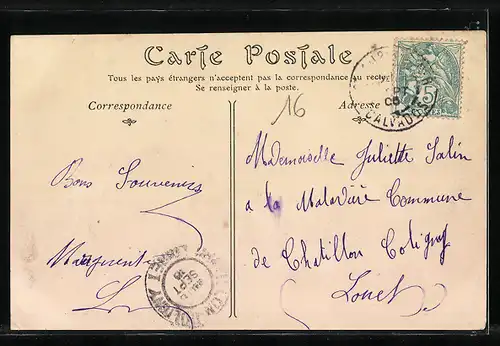 Carte Postale
Tous les pays étrangers n'acceptent pas la correspondance au recto
Se renseigner à la poste.
Correspondance
Adresse
16
5
CALVADOS
Bons Souvenirs
Marguerite
Mademoiselle Juliette Salin
a la Maladrie Commune
de Chatillon Coligny
Loiret
COLIGNY
LOIRET